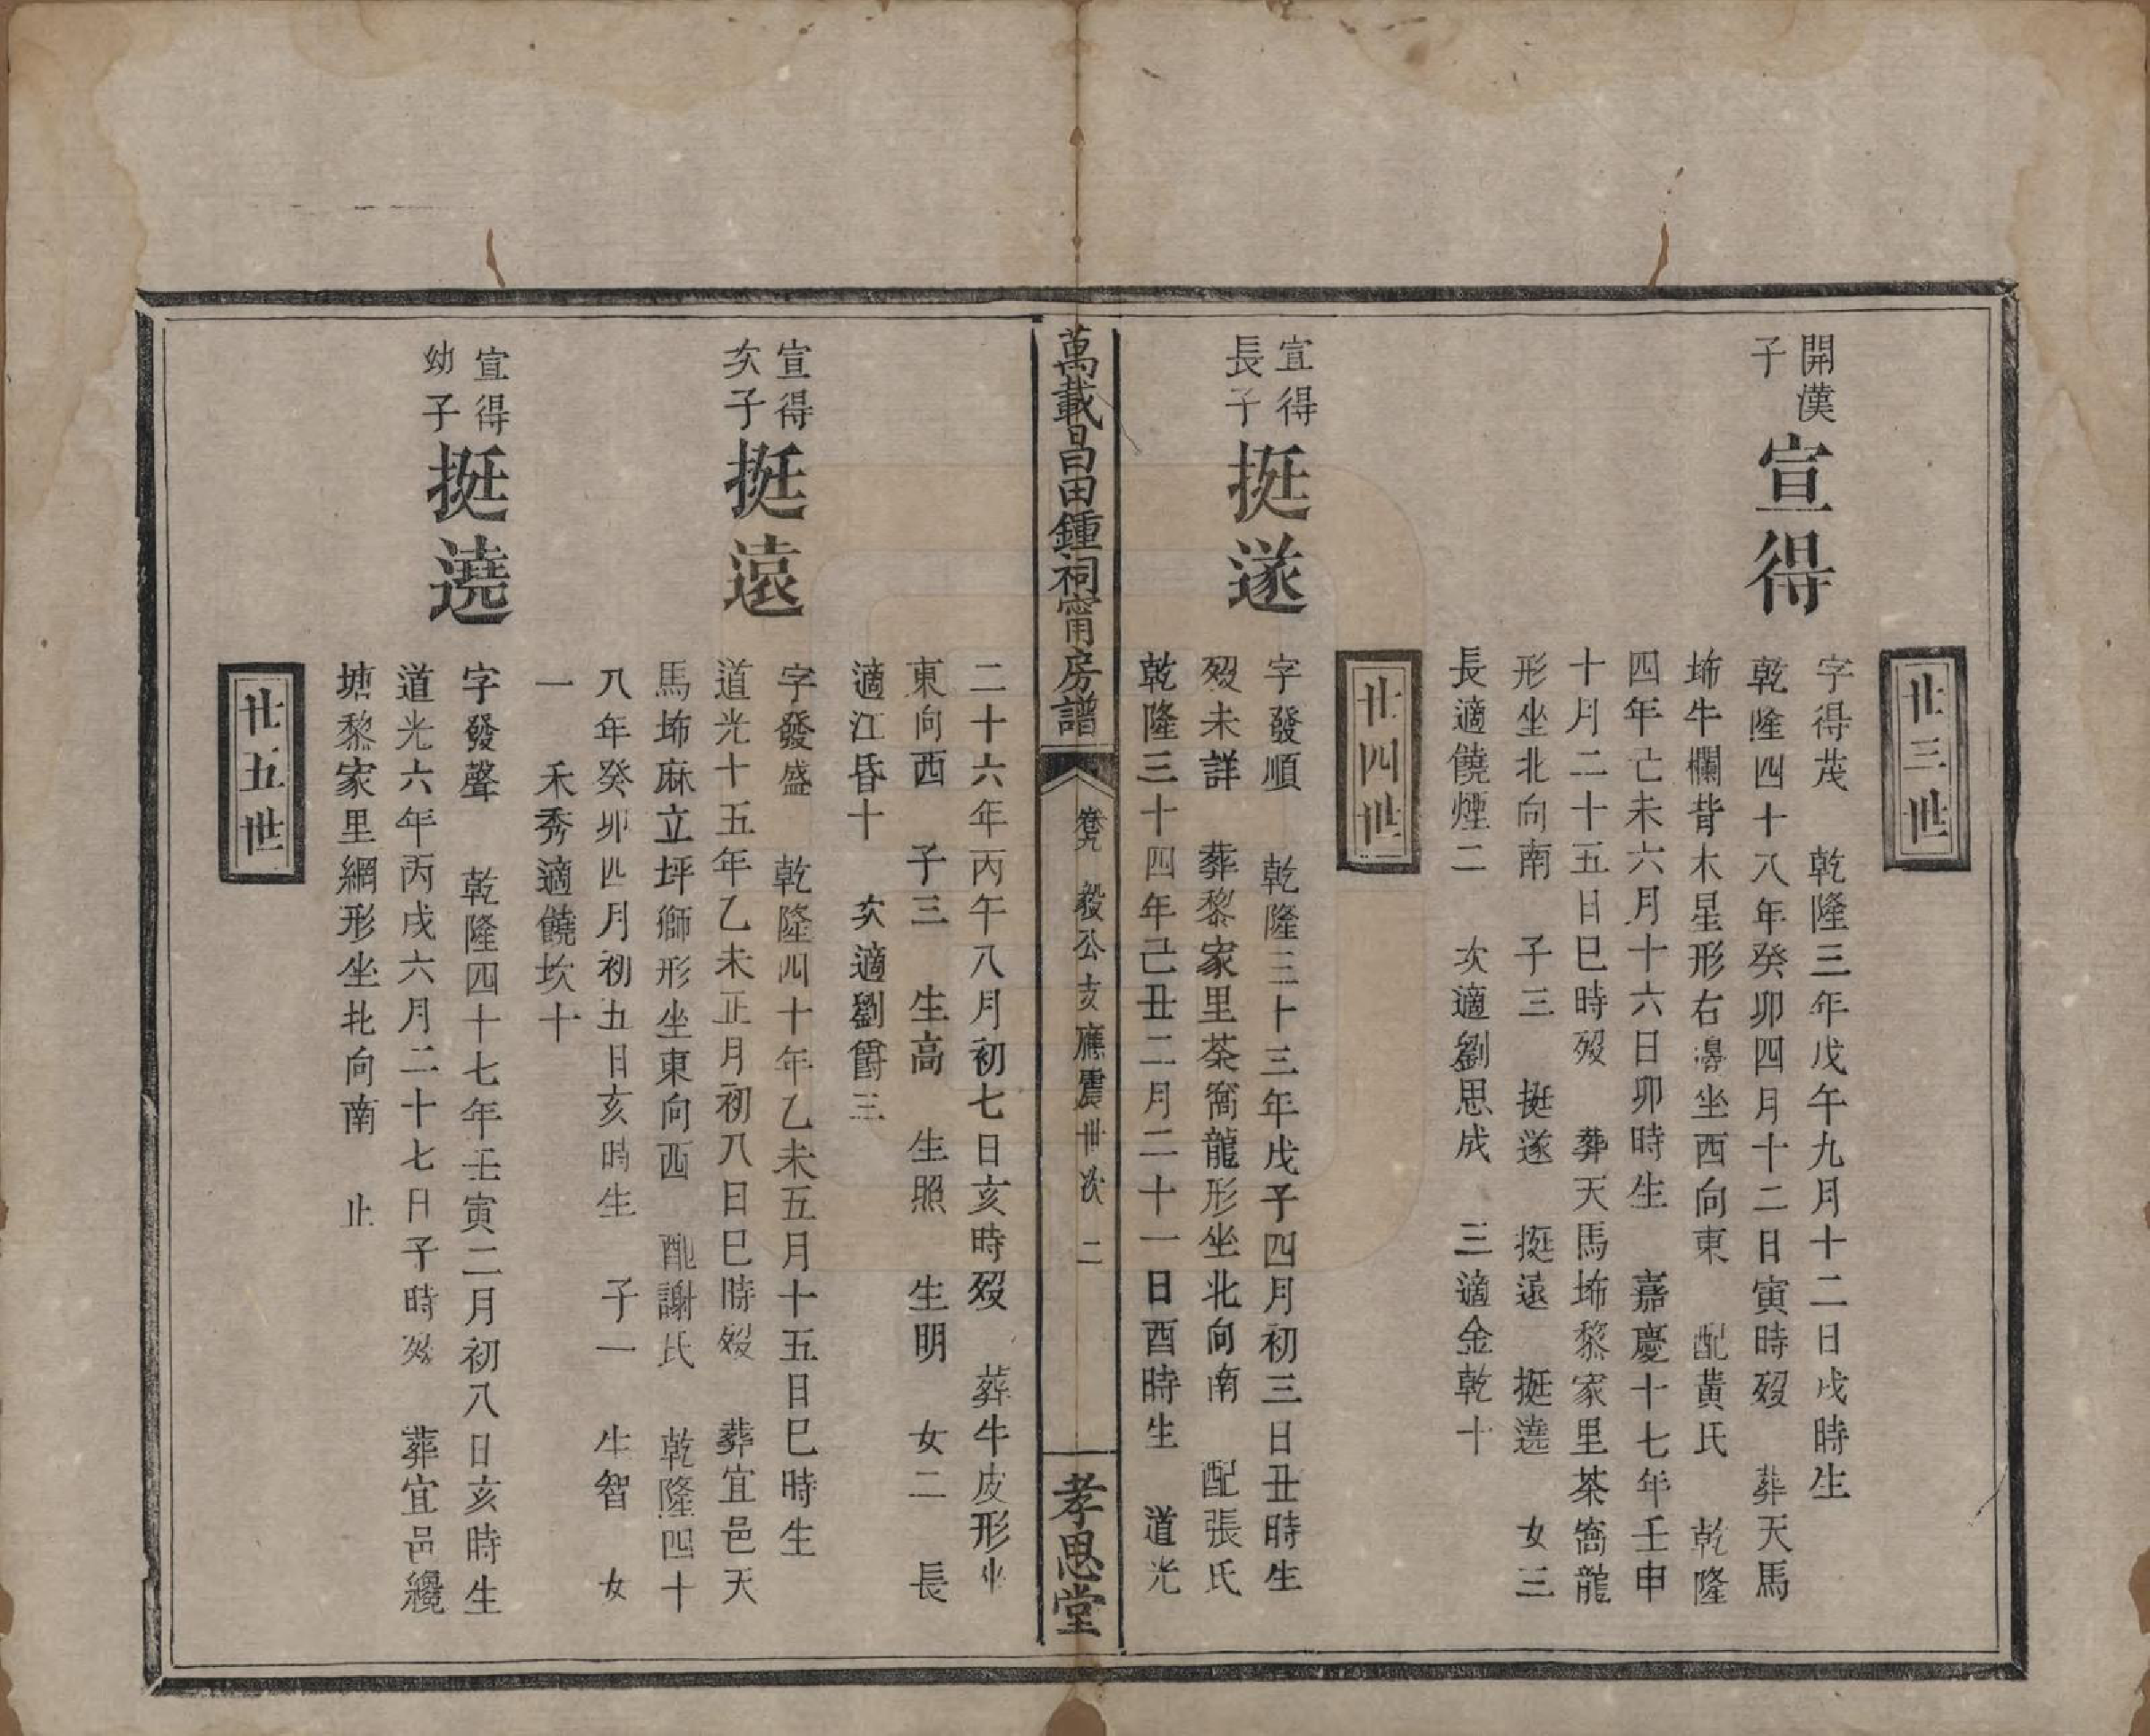 廿三世
開漢
子
宣得
字得茂　乾隆三年戊午九月十二日戌時生
乾隆四十八年癸卯四月十二日寅時歿　葬天馬
㘵牛欄背木星形右邊坐西向東　配黃氏　乾隆
四年己未六月十六日卯時生　嘉慶十七年壬申
十月二十五日巳時歿　葬天馬㘵黎家里茶窩龍
形坐北向南　子三　挺遂　挺遠　挺遶　女三
長適饒煙二　次適劉思成　三適金乾十
廿四世
宣得
長子
挺遂
字發順　乾隆三十三年戊子四月初三日丑時生
歿未詳　葬黎家里茶窩龍形坐北向南　配張氏
乾隆三十四年己丑二月二十一日酉時生　道光
萬載昌田鍾祠甯房譜
卷九　毅公支應震世次　二
孝思堂
二十六年丙午八月初七日亥時歿　葬牛皮形坐
東向西　子三　生高　生照　生明　女二　長
適江昏十　次適劉爵三
宣得
次子
挺遠
字發盛　乾隆四十年乙未五月十五日巳時生
道光十五年乙未正月初八日巳時歿　葬宜邑天
馬㘵麻立坪獅形坐東向西　配謝氏　乾隆四十
八年癸卯四月初五日亥時生　子一　生智　女
一　禾秀適饒坎十
宣得
幼子
挺遶
字發聲　乾隆四十七年壬寅二月初八日亥時生
道光六年丙戌六月二十七日子時歿　葬宜邑纔
塘黎家里網形坐北向南　止
廿五世